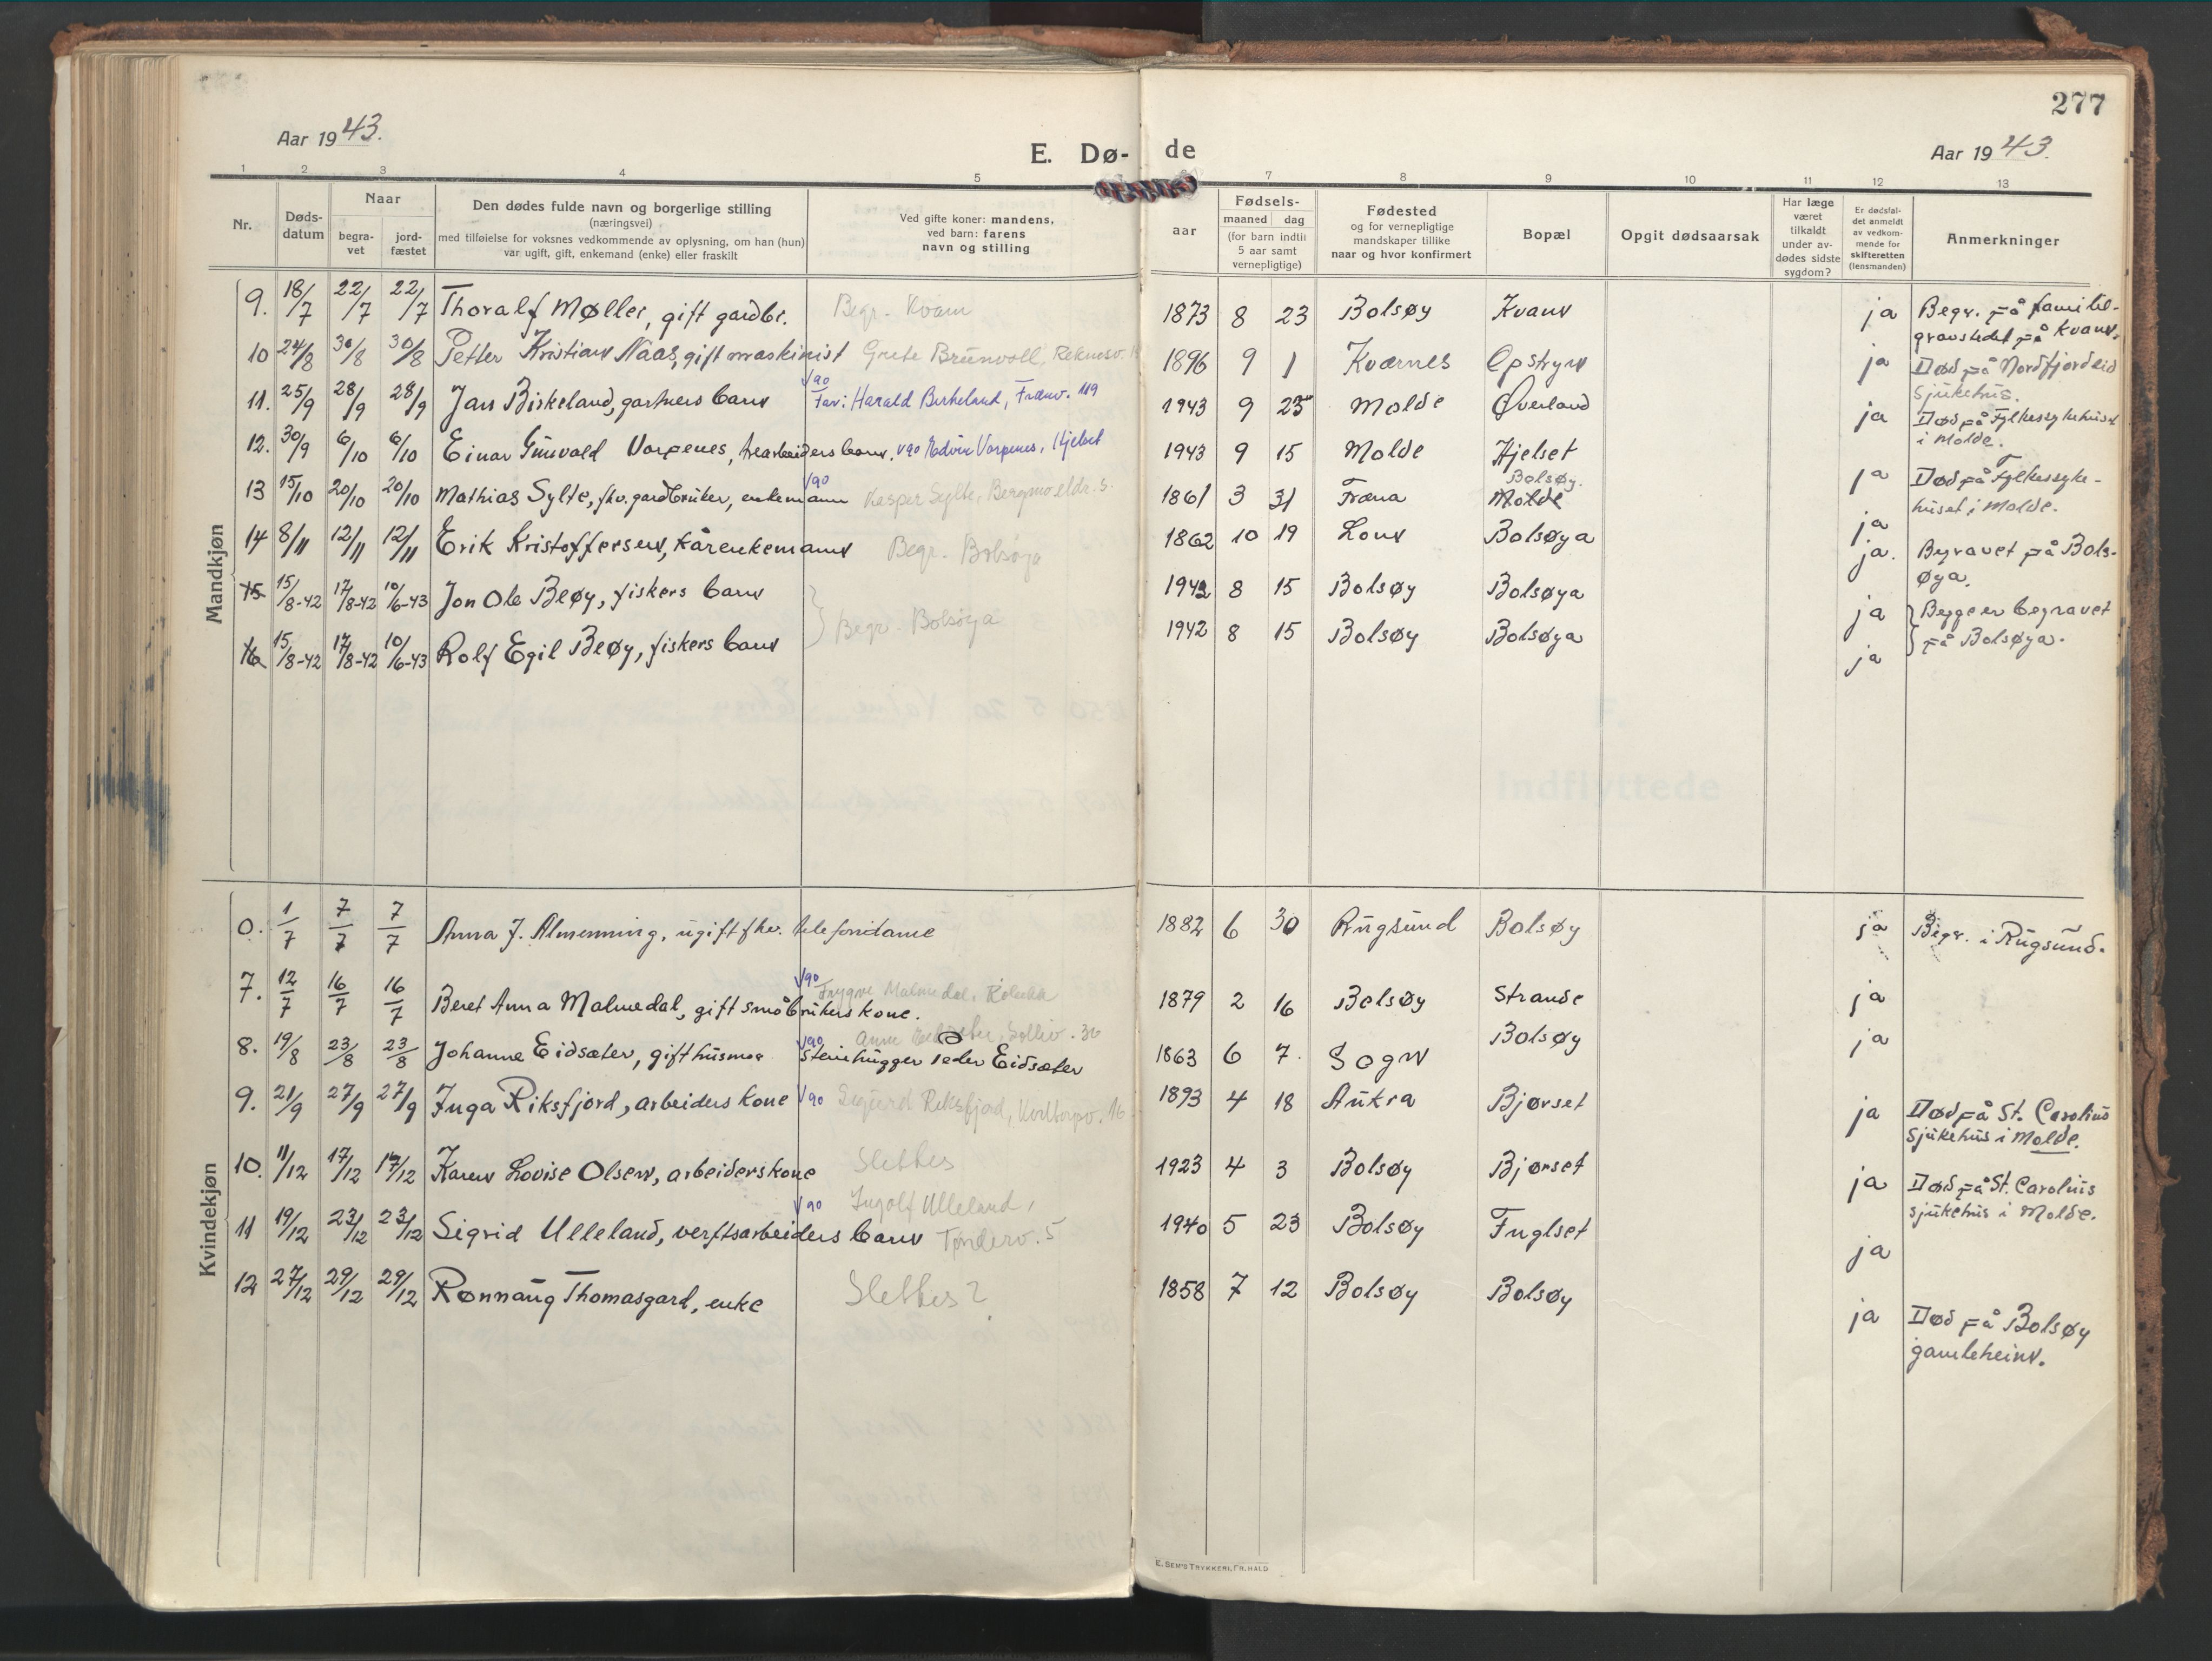 277
Aar 1943.
E. Dø- de
Aar 1943.
1 2 3 4 5 7 8 9 10 11 12 13
Nr.
Døds-
datum
Naar
begra-
vet
jord-
fæstet
Den dødes fulde navn og borgerlige stilling
(næringsvei)
med tilføielse for voksnes vedkommende av oplysning, om han (hun)
var ugift, gift, enkemand (enke) eller fraskilt
Ved gifte koner: mandens,
ved barn: farens
navn og stilling
aar
Fødsels-
maaned dag
(for barn indtil
5 aar samt
vernepligtige)
Fødested
og for vernepligtige
mandskaper tillike
naar og hvor konfirmert
Bopæl
Opgit dødsaarsak
Har læge
været
tilkaldt
under av-
dødes sidste
sygdom?
Er dødsfal-
det anmeldt
av vedkom-
mende for
skifteretten
(lensmanden)
Anmerkninger
Mandkjøn
9. 18/7 22/7 22/7 Thoralf Møller, gift gardbr. Begr. Kvam 1873 8 23 Bolsøy Kvam ja Begr. på familie-
gravstedet på Kvam.
10 24/8 30/8 30/8 Petter Kristian Naas, gift maskinist Grete Brunvoll, 1896 9 1 Kværnes Opstryn ja Død på Nordfjordeid
sjukehus.
11. 25/9 28/9 28/9 Jan Birkeland, gartners barn Far: Harald Birkeland, Frænv. 119 1943 9 23 Molde Øverland ja Død på Fylkessykehuset
i Molde.
12. 30/9 6/10 6/10 Einar Gunvald Vorpenes, barn. Edvin Vorpenes, Hjelset 1943 9 15 Molde Hjelset ja Død på Fylkessyke-
huset i Molde.
13 15/10 20/10 20/10 Mathias Sylte, fhv. gardbruker, enkemann Kasper Sylte, 1861 3 31 Fræna Bolsøy. Molde ja
14 8/11 12/11 12/11 Erik Kristoffersen, kårenkemann Begr. Bolsøya 1862 10 19 Lom Bolsøya ja. Begravet på Bols-
øya.
15 15/8-42 17/8-42 10/6-43 Jon Ole Beøy, fiskers barn 1942 8 15 Bolsøy Bolsøya ja Begge er begravet
Begr. Bolsøya
16 15/8-42 17/8-42 10/6-43 Rolf Egil Beøy, fiskers barn 1942 8 15 Bolsøy Bolsøya ja på Bolsøya.
Kvindekjøn
1/7 7/7 7/7 Anna J. Almenning, ugift fhv. telefondame 1882 6 30 Rugsund Bolsøy ja Begr. i Rugsund.
7. 12/7 16/7 16/7 Beret Anna Malmedal, gift småbrukers kone. Trygve Malmedal, 1879 2 16 Bolsøy Strande ja
8. 19/8 23/8 23/8 Johanne Eidsæter, gift husmor Steinhugger Peder Eidsæter 1863 6 7. Sogn Bolsøy ja
9. 21/9 27/9 27/9 Inga Riksfjord, arbeiders kone Sigurd Riksfjord, 1893 4 18 Aukra Bjørset ja Død på St. Carolus
sjukehus i Molde.
10. 11/12 17/12 17/12 Karen Lovise Olsen, arbeiderskone Slettes 1923 4 3 Bolsøy Bjørset ja Død på St. Carolus
sjukehus i Molde.
11 19/12 23/12 23/12 Sigrid Ulleland, verftsarbeiders barn Ingolf Ulleland, Tønderv. 5 1940 5 23 Bolsøy Fuglset ja
12 27/12 29/12 29/12 Rønnaug Thomasgard, enke Slettes? 1858 7 12 Bolsøy Bolsøy ja Død på Bolsøy
gamleheim.
E. SEM'S TRYKKERI, FR.HALD